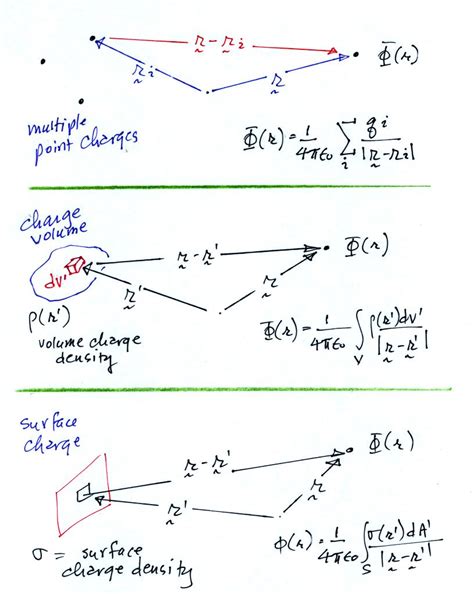 r - r i
Φ(r)
r i
r
multiple
point charges
Φ(r) = 1/4πϵ₀ Σ i q i / |r - r i|
charge
volume
r - r'
Φ(r)
dv'
r'
ρ(r')
volume charge
density
Φ(r) = 1/4πϵ₀ ∫ V ρ(r')dv' / |r - r'|
surface
charge
r - r'
Φ(r)
r'
σ = surface
charge density
φ(r) = 1/4πϵ₀ ∫ S σ(r')dA' / |r - r'|